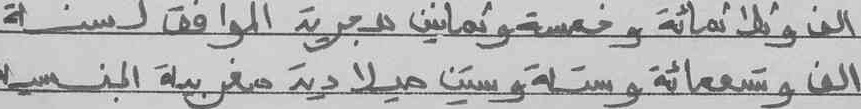 الف وثلاثمائة وخمسة وثمانين هجرية الموافق لسنة
الف وتسعمائة وستة وستين ميلادية مغربية الجنسية